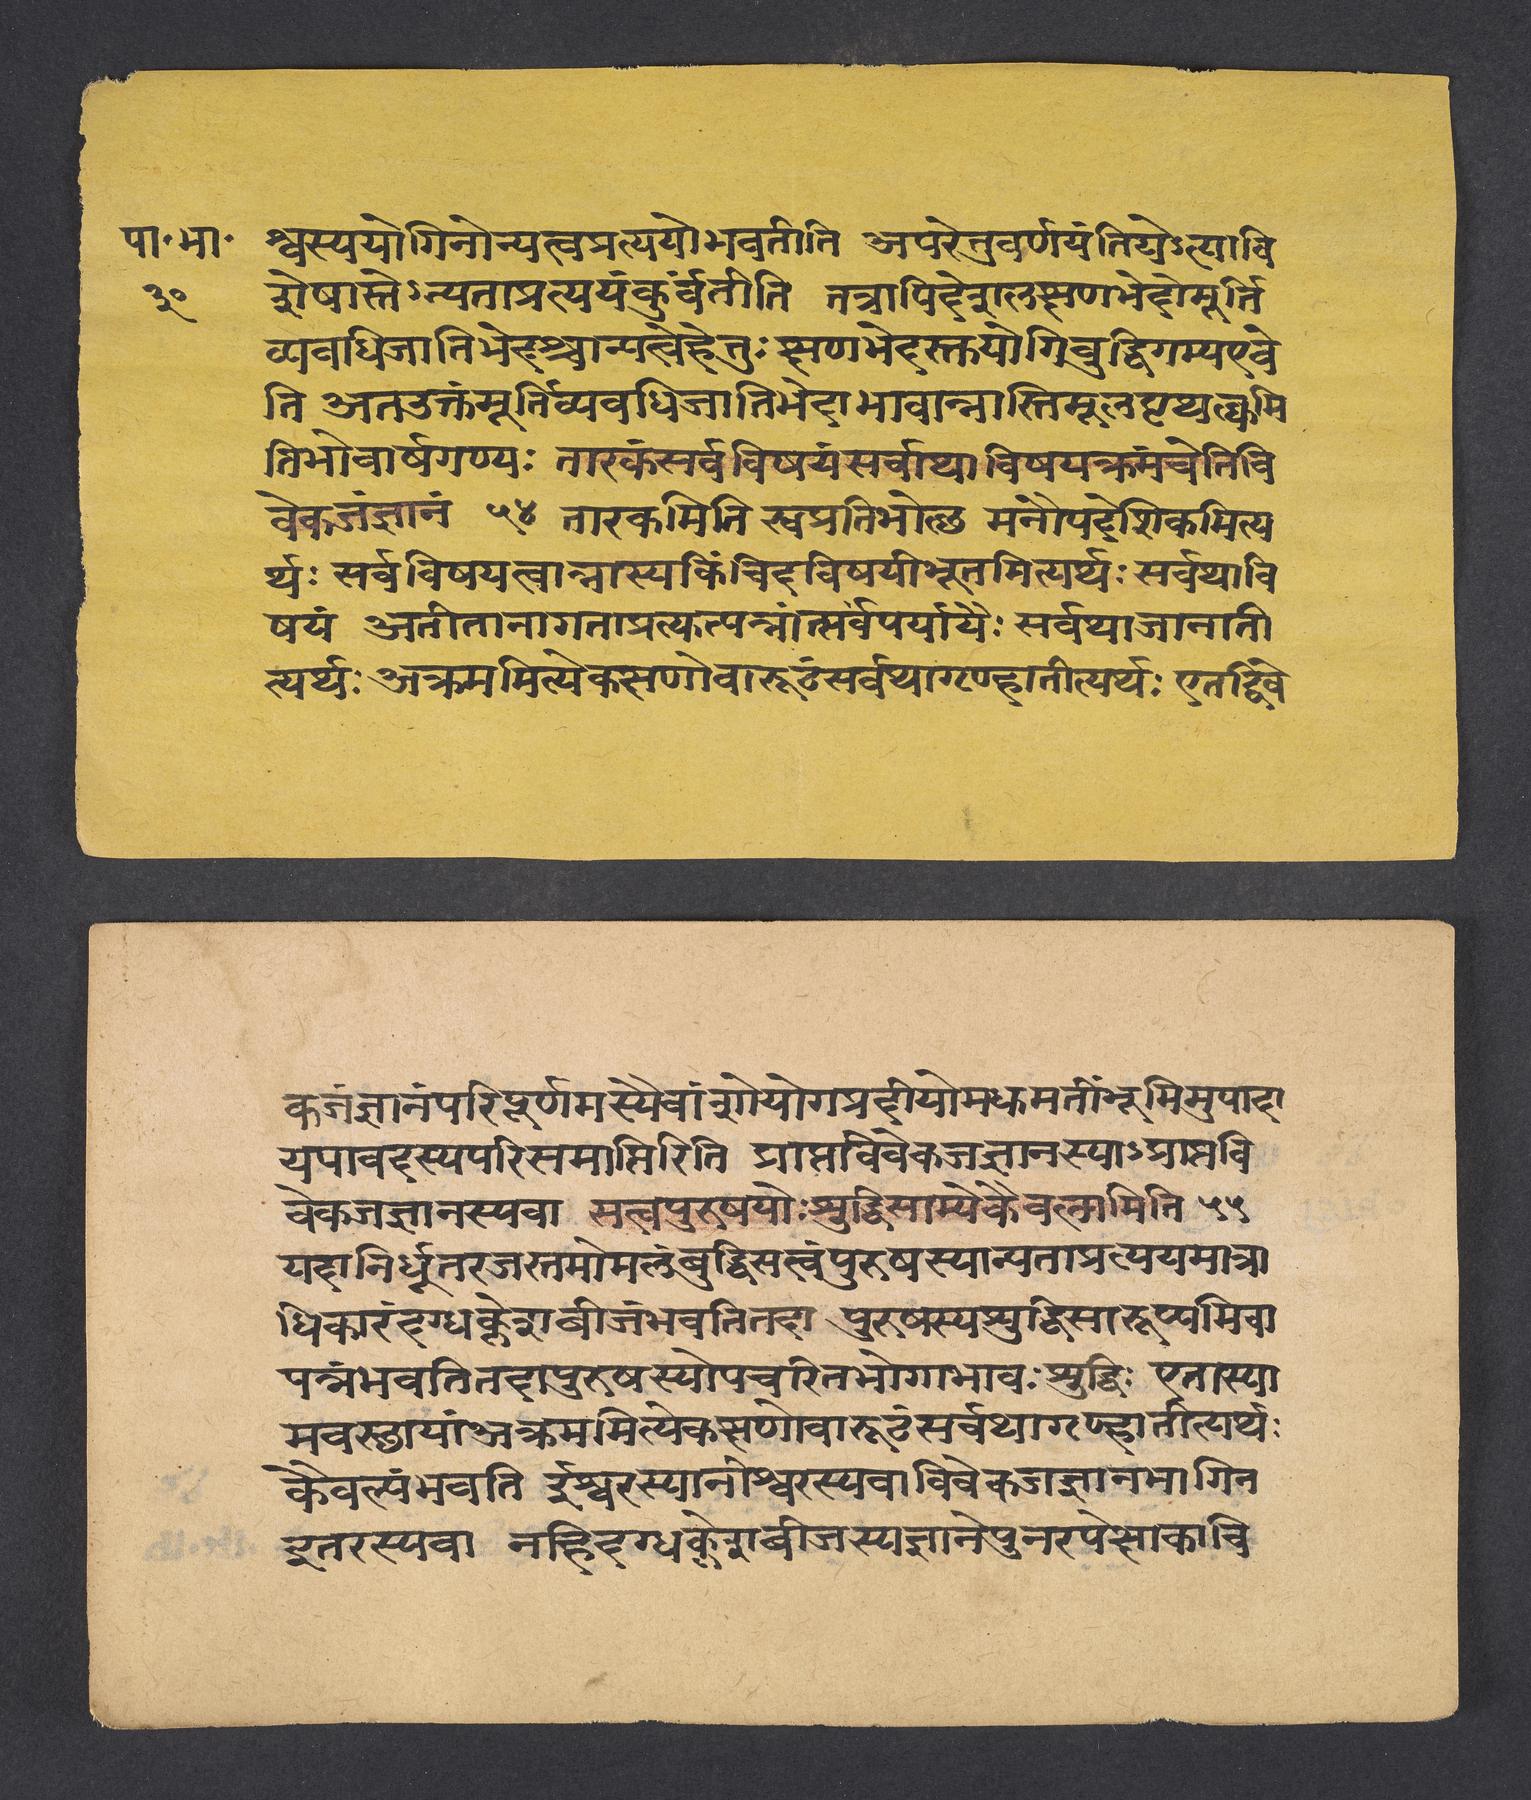 पा॰भा॰
३०
श्वरस्ययोगिनोन्यत्वप्रत्ययोभवतीति अपरेतुवर्णयंतियेऽत्यावि
शेषास्तेऽन्यताप्रत्ययंकुर्वंतीति तत्रापिदेशलक्षणभेदोमूर्ति
व्यवधिजातिभेदश्चान्यत्वेहेतुः क्षणभेदस्तुयोगिबुद्धिगम्यएवे
ति अतउक्तंमूर्तिव्यवधिजातिभेदाभावान्नास्तिमूलपृथक्त्वमि
तिभोवार्षगण्यः तारकंसर्वविषयंसर्वाथाविषयक्रमंचेतिवि
वेकजंज्ञानं ५४ तारकमिति स्वप्रतिभोत्छ मनौपदेशिकमित्य
र्थः सर्वविषयत्वान्नास्यकिंचिदविषयीभूतमित्यर्थः सर्वथावि
षयं अतीतानागताप्रत्यत्पन्नंत्सर्वपर्यायैः सर्वथाजानाती
त्यर्थः अक्रममित्येकक्षणोवारूढंसर्वथागृण्हातीत्यर्थः एतद्विवे
कजंज्ञानंपरिपूर्णमस्यैवांशोयोगप्रदीपोमधुमतींभूमिमुपादा
ययावदस्यपरिसमाप्तिरिति प्राप्तविवेकजज्ञानस्याऽप्राप्तवि
वेकजज्ञानस्यवा सत्वपुरुषयोःशुद्धिसाम्येकैवल्यमिति ५५
यदानिर्धूतरजस्तमोमलंबुद्धिसत्वंपुरुषस्यान्यताप्रत्ययमात्रा
धिकारंदग्धक्लेशबीजंभवतितदा पुरुषस्यशुद्धिसारूप्यमिवा
पन्नंभवतितदापुरुषस्योपचरितभोगाभावःशुद्धिः एतास्या
मवस्छायांअक्रममित्येकक्षणोवारूढंसर्वथागृण्हातीत्यर्थः
कैवल्यंभवति ईश्वरस्यानीश्वरस्यवाविवेकजज्ञानभागिन
इतरस्यवा नहिदग्धक्लेशबीजस्यज्ञानेपुनरपेक्षाकाचि